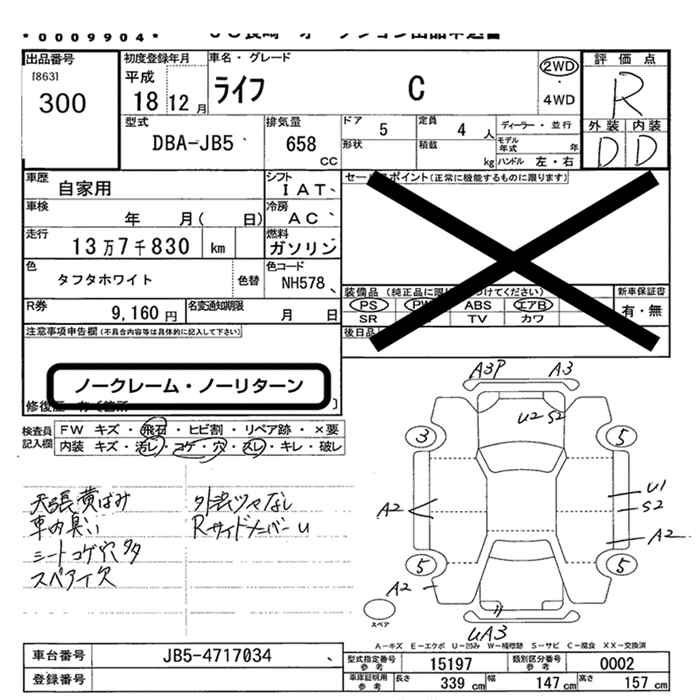 *0009904*
出品番号
[863]
300
初度登録年月
平成
18 12 月
車名・グレード
ライフ C
2WD
・
4WD
評価点
R
外装 内装
D D
型式
DBA-JB5
排気量
658
CC
ドア
5
定員
4 人
形状
積載
kg
ディーラー・並行
モデル年式 年
ハンドル 左・右
車歴
自家用
シフト
IAT、
車検
年 月( 日)
冷房
AC、
走行
13万7千830 km
燃料
ガソリン
色
タフタホワイト
色替
色コード
NH578、
R券
9,160円
名変通知期限
月 日
セールスポイント(正常に機能するものに限ります)
新車保証書
有・無
PS ABS エアB
SR TV カワ
後日品
注意事項申告欄(不具合内容等は具体的に記入して下さい)
ノークレーム・ノーリターン
検査員記入欄
FW キズ・飛石・ヒビ割・リペア跡・×要
内装 キズ・汚レ・コゲ・穴・スレ・キレ・破レ
天張黄ばみ
車内臭い
シートコゲ穴多
スペア欠
外装ツヤなし
RサイドメンバーU
A3P A3
U2 S2
3 5
A2
U1
S2
A2
5 5
A2
スペア
UA3
A-キズ E-エクボ U-凹み W-補修跡 S-サビ C-腐食 XX-交換済
車台番号
JB5-4717034
登録番号
型式指定番号参考
15197
類別区分番号参考
0002
車庫証明用参考
長さ 339 cm 幅 147 cm 高さ 157 cm